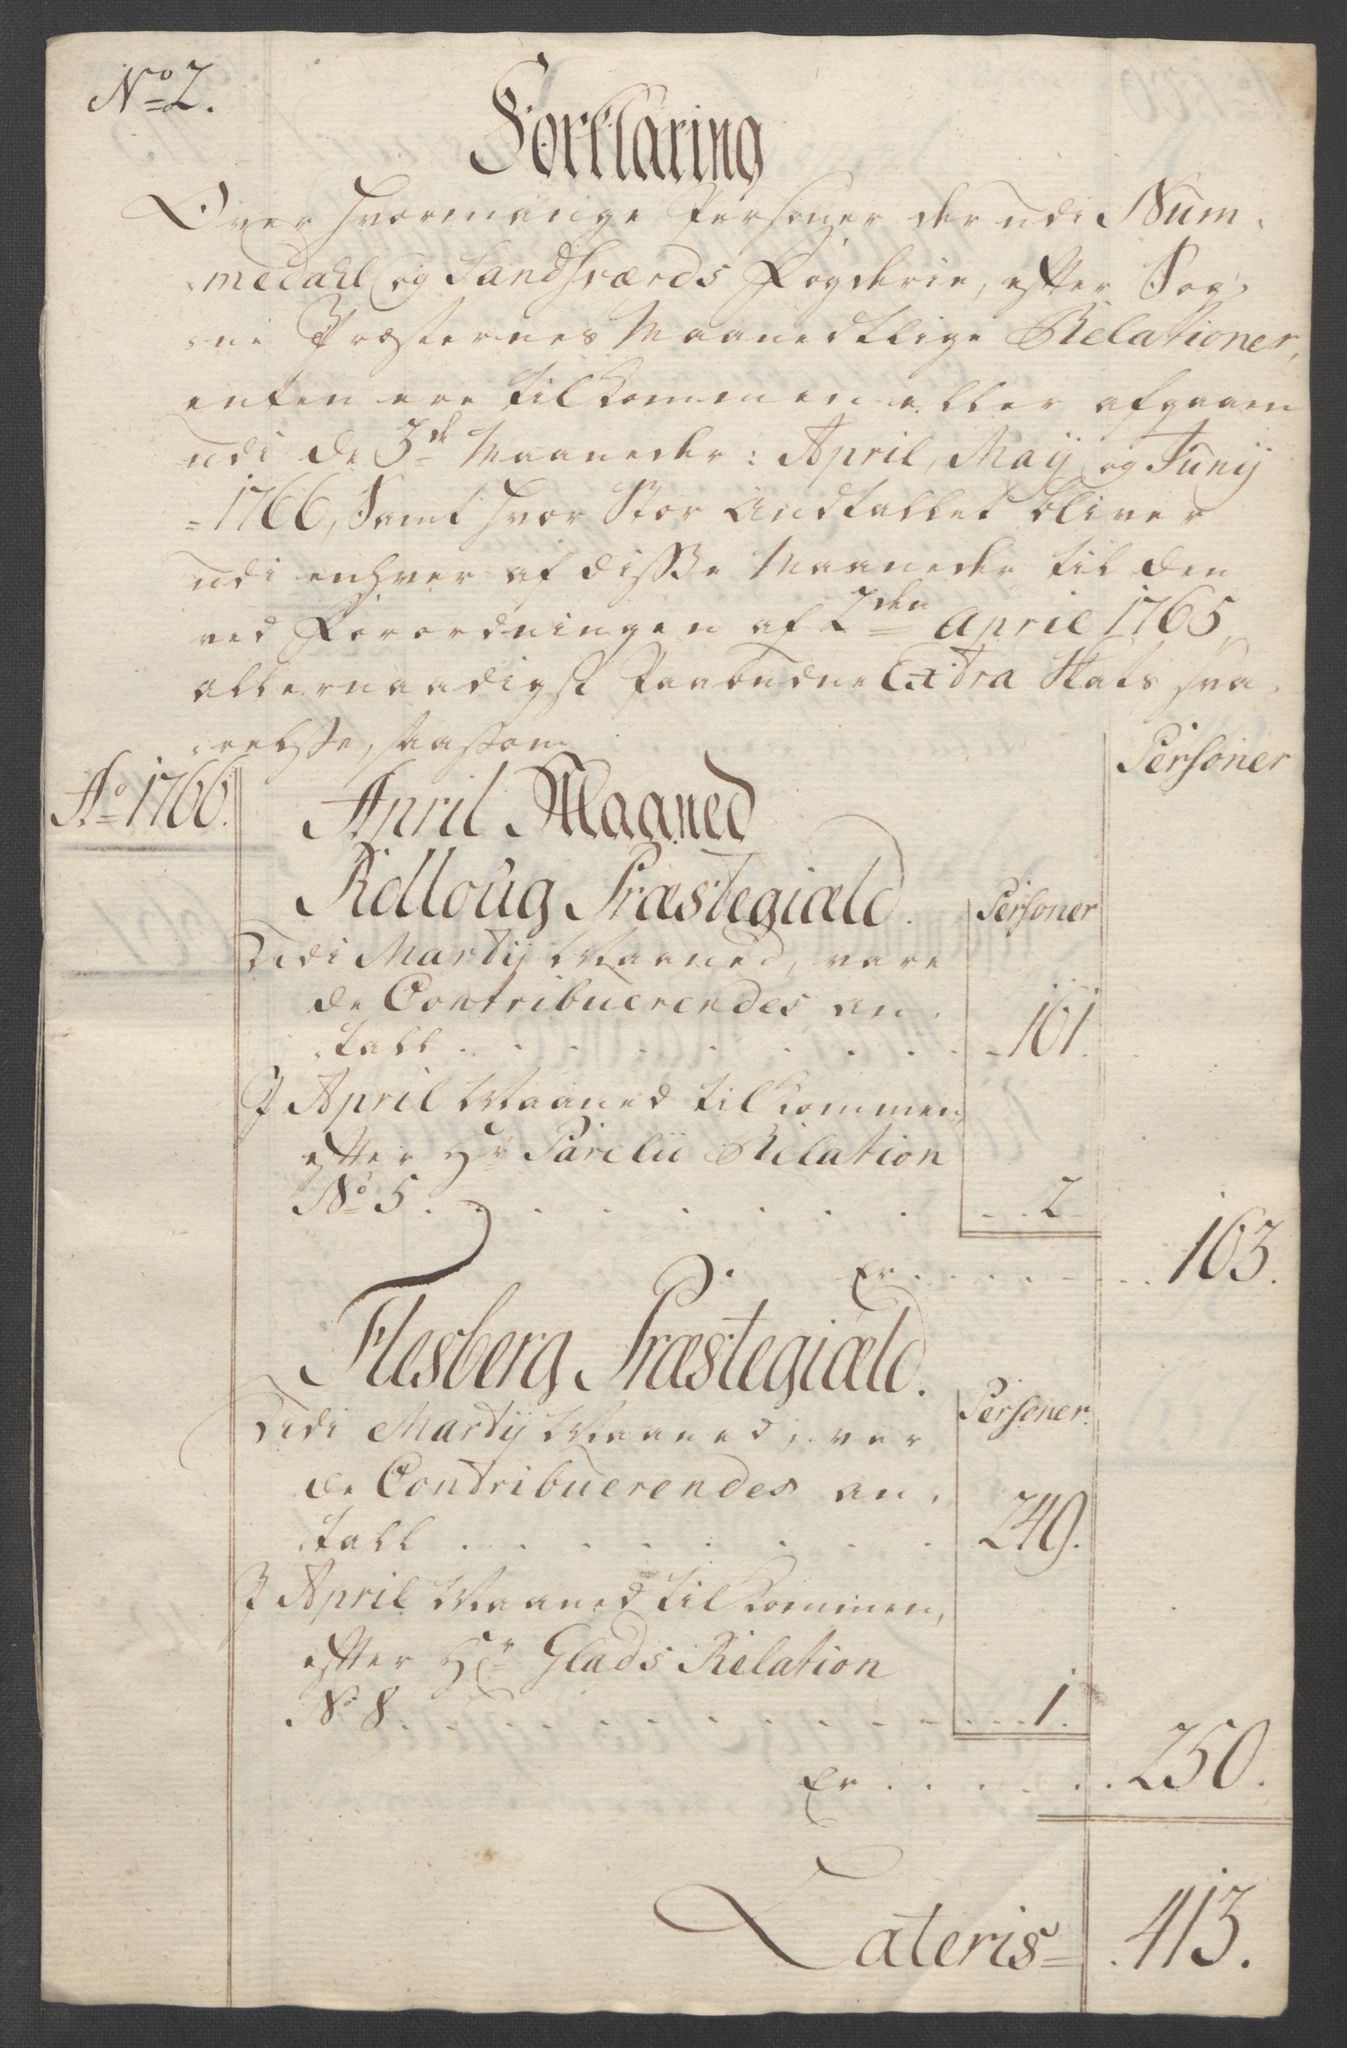 No 2.
Forklaring
Over hvormange Personer der udi Num-
medahl og Sandsværds Fogderie, efter Sog-
ne Præsternes Maanedtlige Relationer,
enten ere tilkommen eller afgaaen
udi de 3de Maaneder: April, Maij og Junij
1766, Samt hvor Stor Andtallet bliver
udi enhver af disse Maaneder til den
ved Forordningen af 2den April 1765
allernaadigst Paabudne Extra Skats Sva-
relse, saasom
Personer
Ao 1766.
April Maaned
Rolloug Præstegiæld.
Personer
Udi Martij Maaned, vare
de Contribuerendes an-
tall . . . 161.
I April Maaned tilkommen,
efter Hr Parelii Relation
No 5. . . . 2
Er . . . 163.
Flesberg Præstegiæld.
Personer
Udi Martij Maaned, var
de Contribuerendes an-
tall . . . 249.
I April Maaned tilkommen,
efter Hr Glads Relation
No 8. . . . 1.
Er . . . 250.
Lateris 413.